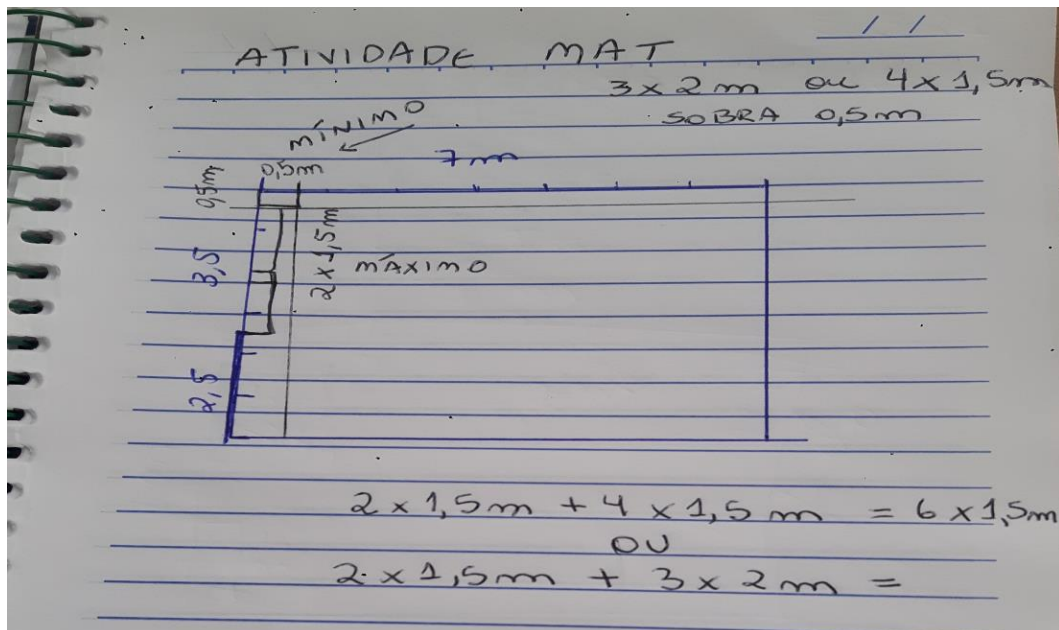 / /
ATIVIDADE MAT
3 x 2 m ou 4 x 1,5m
SOBRA 0,5m
MÍNIMO
7m
0,5m
0,5m
3,5
2 x 1,5m
MÁXIMO
2,5
2 x 1,5m + 4 x 1,5 m = 6 x 1,5m
OU
2 x 1,5m + 3 x 2 m =